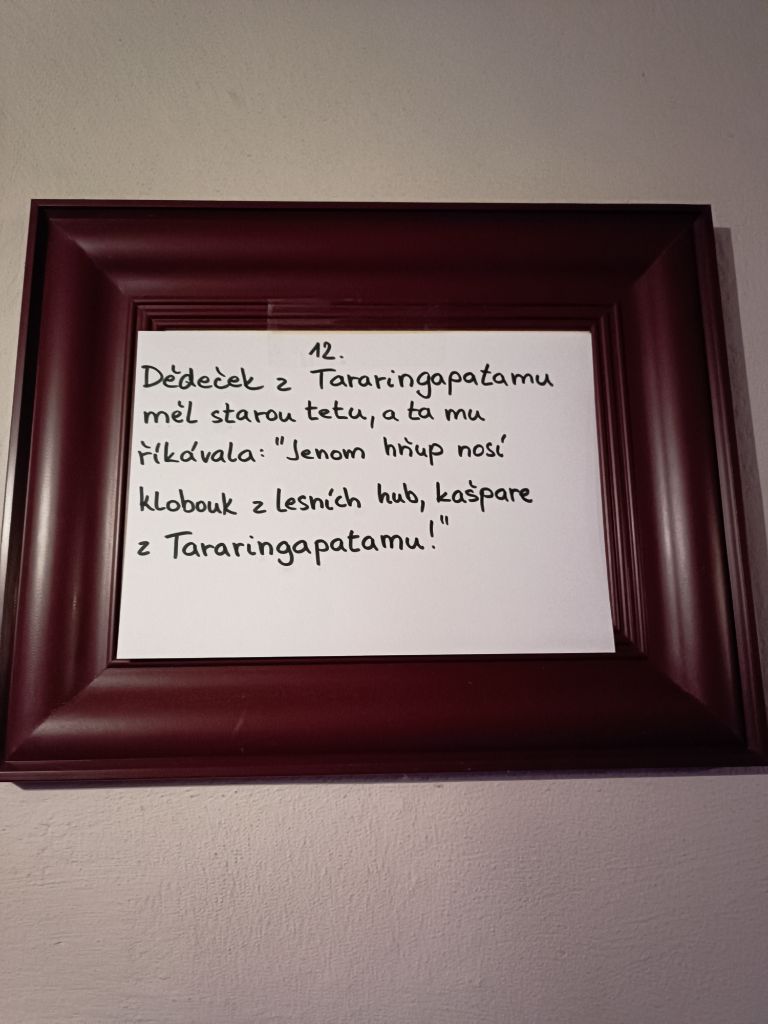 12.
Dědeček z Tararingapatamu
měl starou tetu, a ta mu
říkávala: "Jenom hňup nosí
klobouk z lesních hub, kašpare
z Tararingapatamu!"